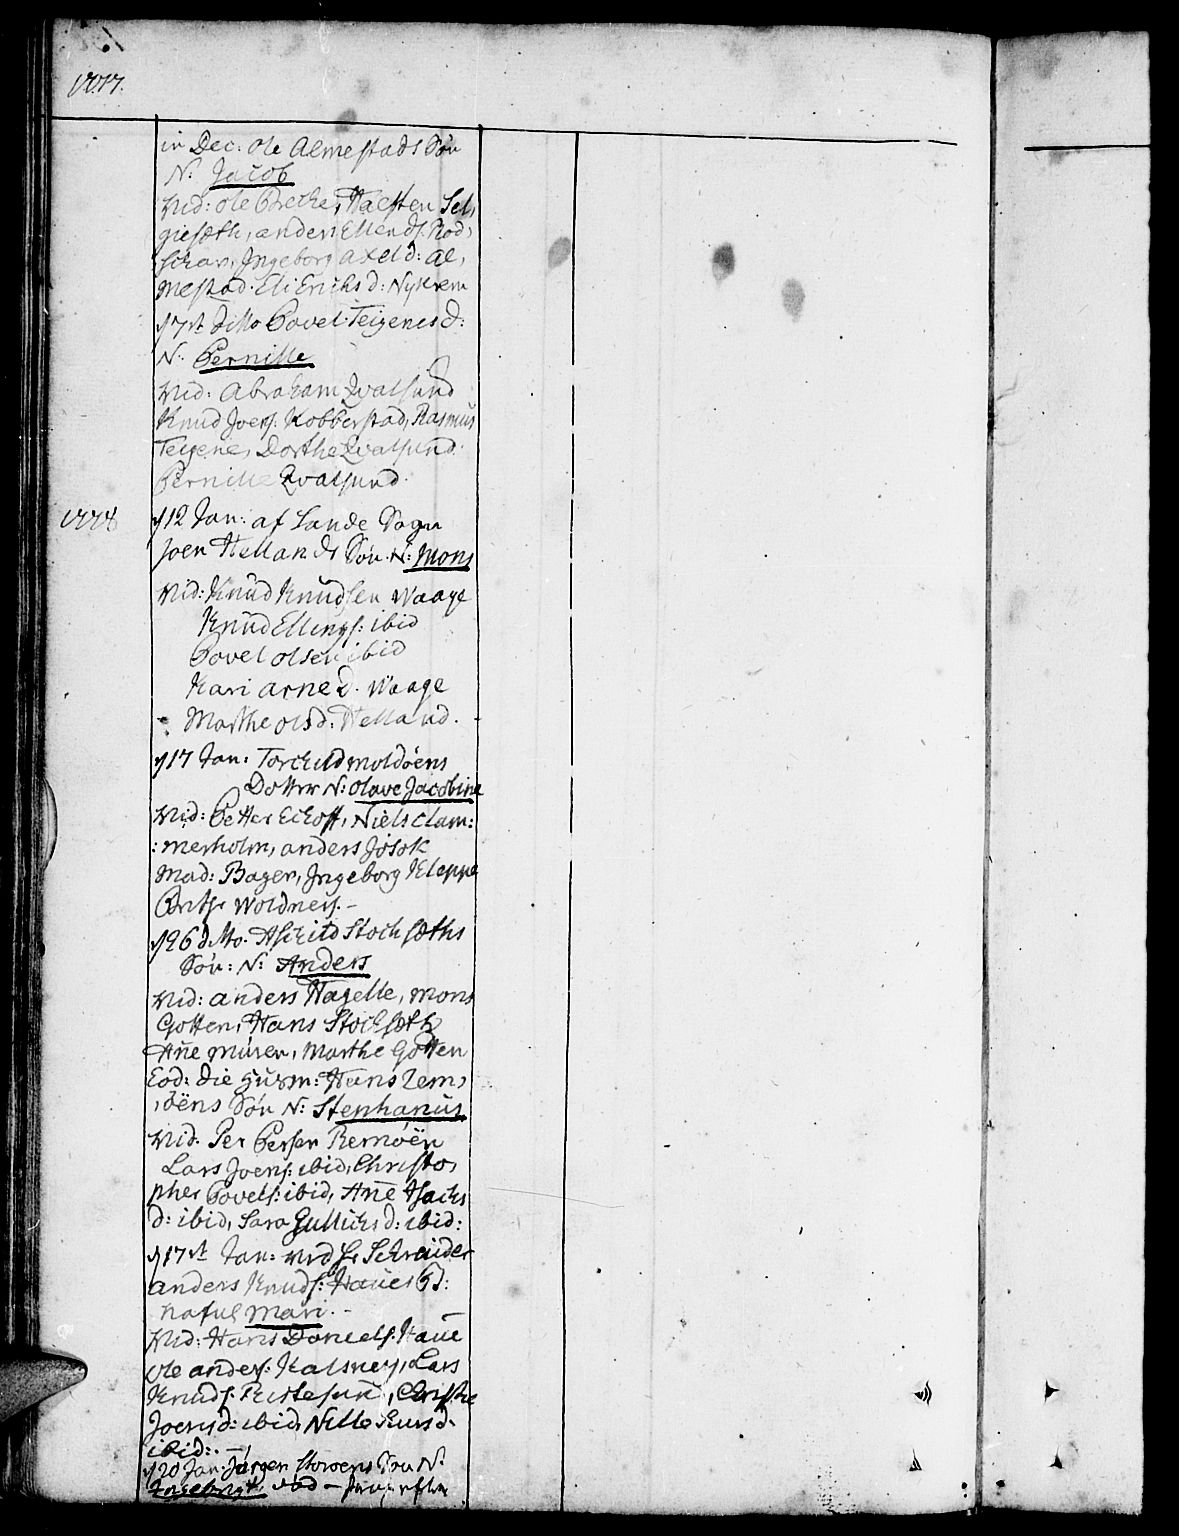 1777.
in Dec: Ole Almestads Søn
N: Jacob
Vid: Ole Brecke, Halsten Sel,
giesæth, anders Ellends: Rod,
schar, Ingeborg Axeld: Al,
mestad. Eli Erichsd: Nykrem
17 ditto Povel Teigenes d:
N: Pernille
Vid: Abraham Qvalsund
Knud Joens: Kobberstad, Rasmus
Teigene, Dorthe Qvalsund.
Pernille Qvalsund.
1778
12 Jan: af Lande Sogn
Joen Hellands Søn N: Mons
Vid: Knud Knudsen Waage
Knud Ellings: ibid
Povel Olsen ibid
Kari Arned. Waage
Marthe Olsd. Helland.
17 Jan: Torchild Moldøens
Dotter N: Olave Jacobine
Vid: Petter Eckoff, Niels Clam:
:merholm, anders Josok
Mad: Bager, Ingeborg Kleppe
Woldnes.
26 ditto. Aschild Stochsæths
Søn: N: Anders
Vid: anders Hagelle, Mons
Gotten, Hans Stochsæth
Ane Muren, Marthe Gotten
Eod: die Hans Rem,
,øens Søn N: Stephanus
Vid. Per Persen Remøen
Lars Joens: ibid, Christo,
pher Povels: ibid, Ane Isachs
d: ibid, Sara Gullichsd: ibid:
17 Jan: ved Hr Schreuder
anders Knuds:
Mari.
Vid: Hans Daniels.
Ole anders: Kalsnes, Lars
Knuds.
Joensd: ibid, Nille
ibid:.
20 Jan. Jørgen Søn N: